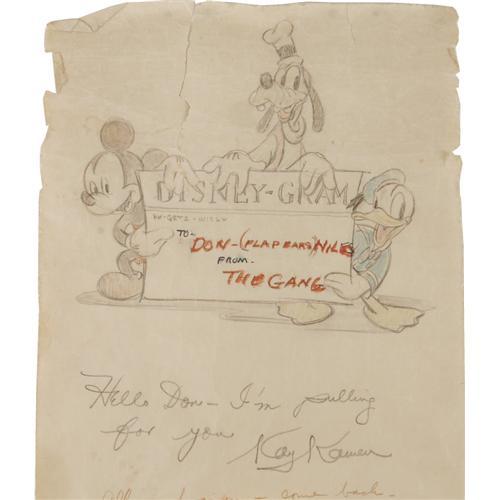 DISNEY-GRAM
TO-
DON-(FLAP EARS) NILES
FROM-
THE GANG
Hello Don- I'm pulling
for you Kay Kamen
- come back-